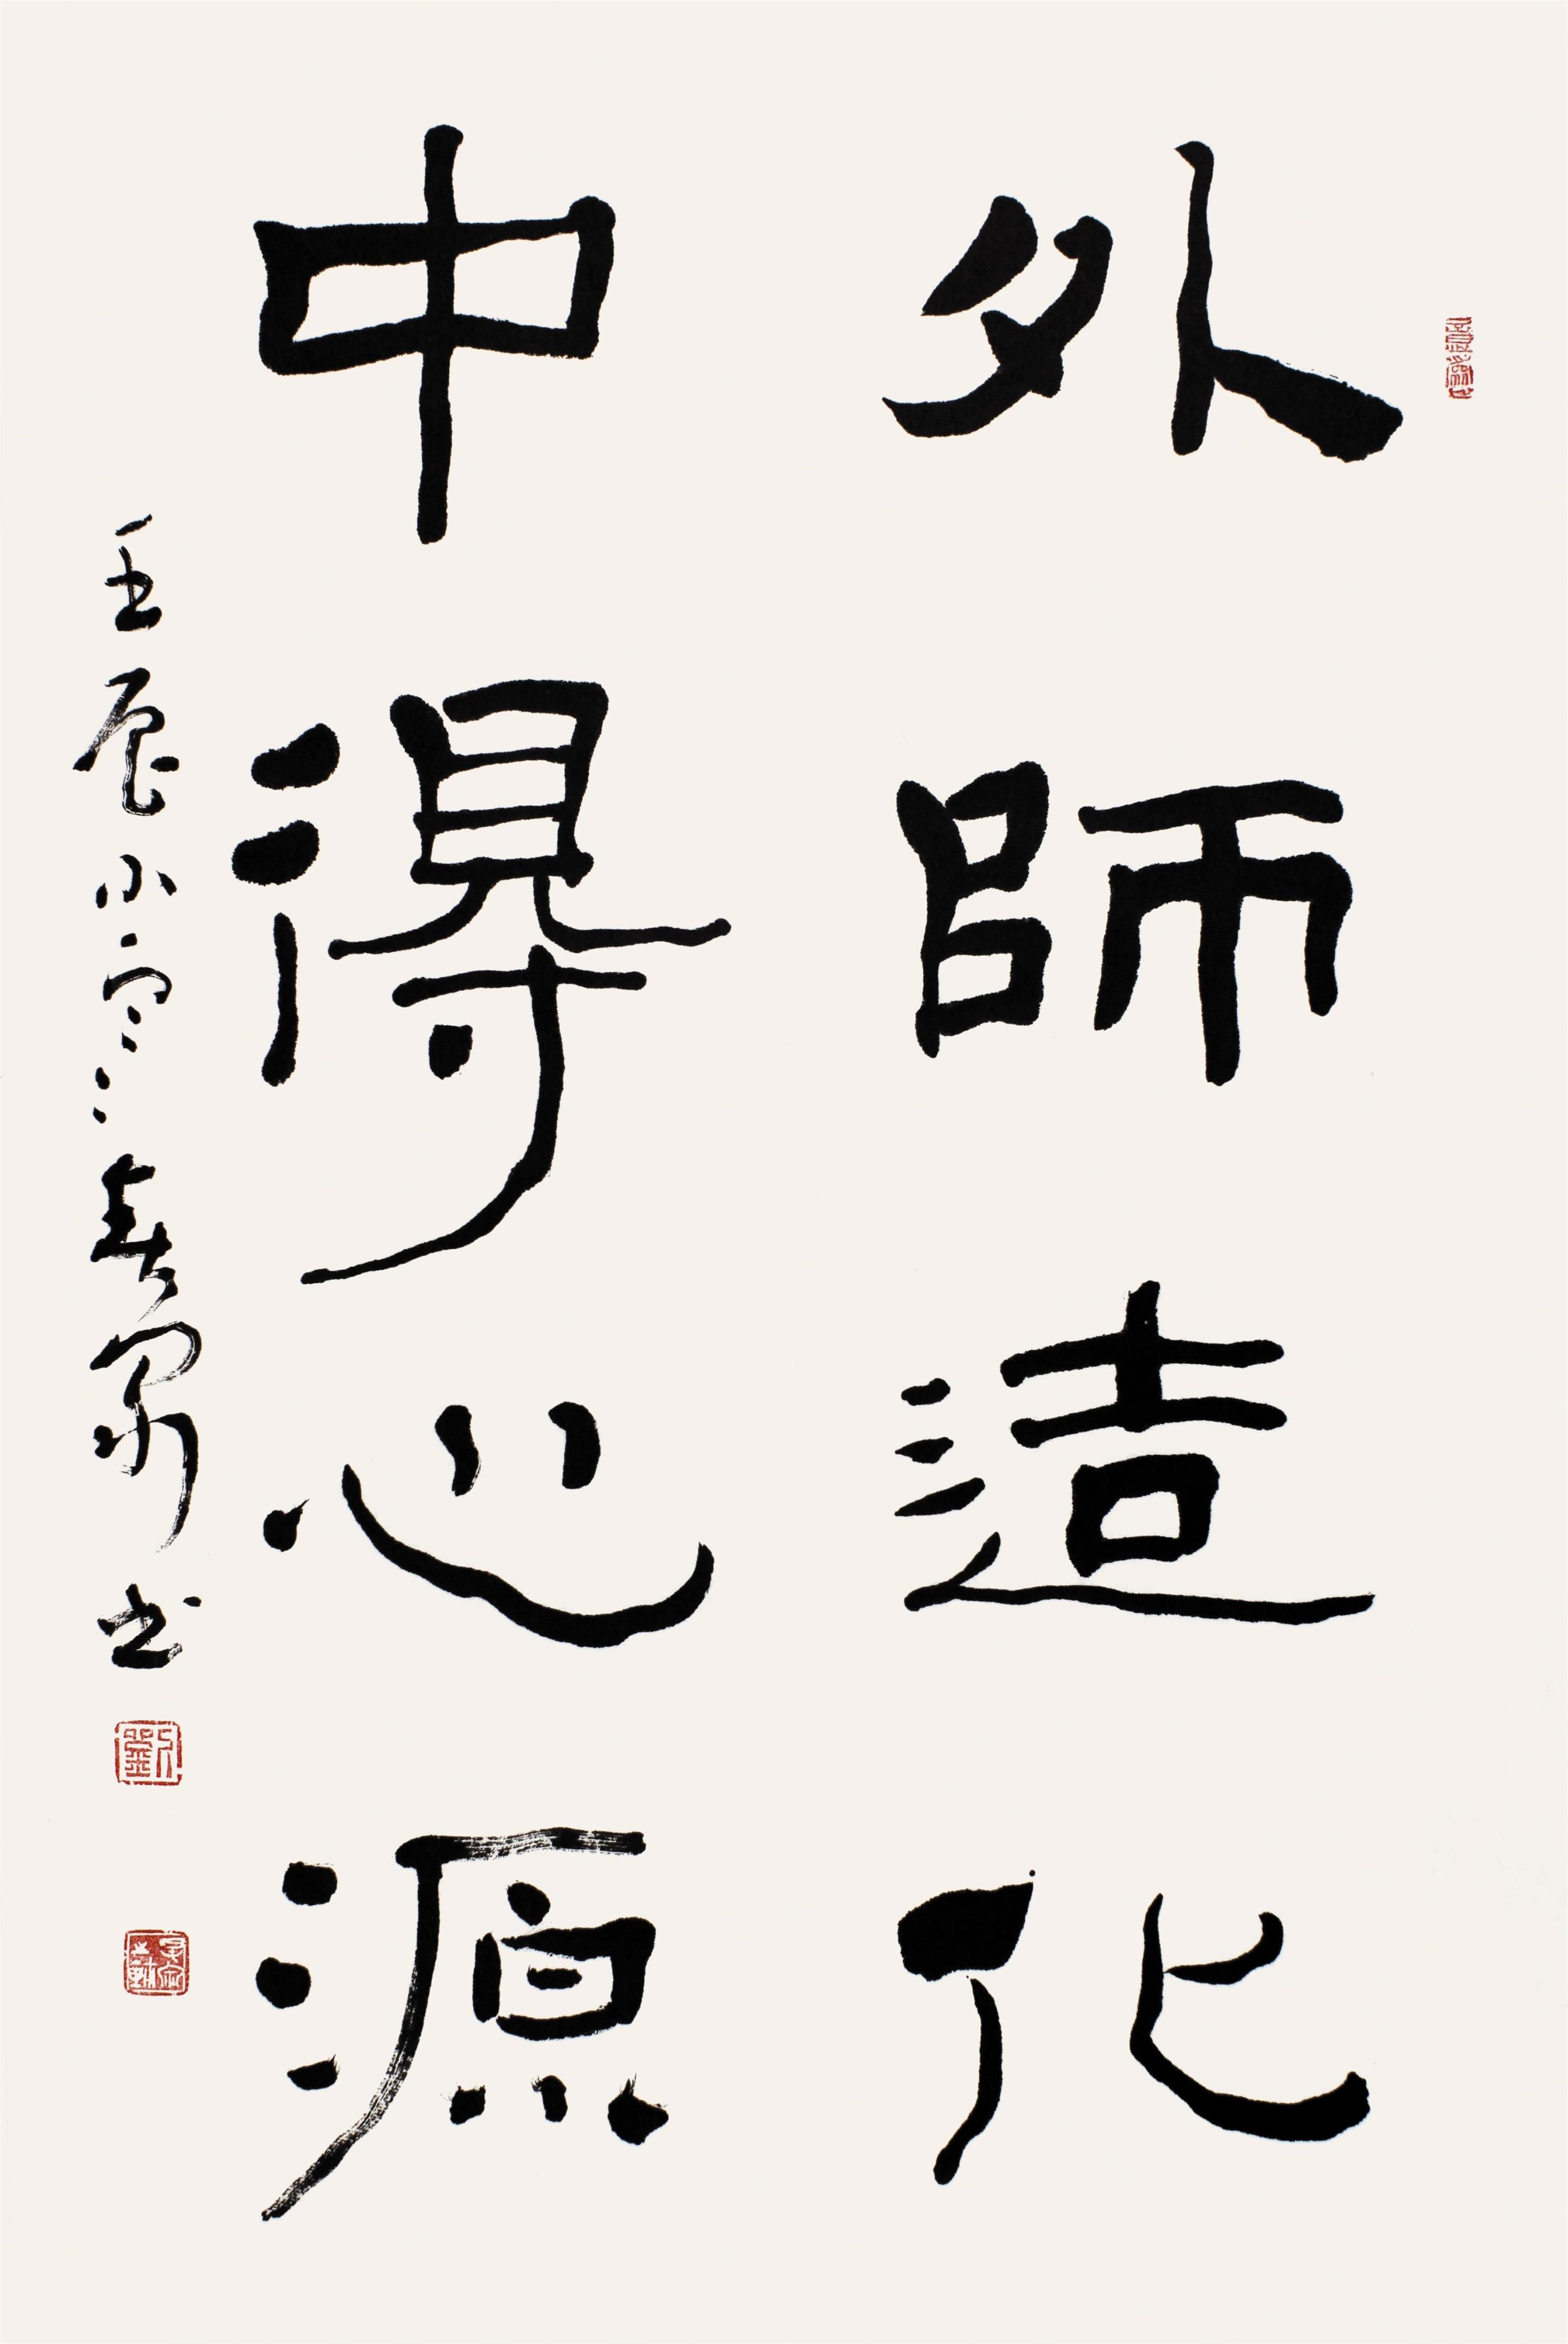 外師造化
中得心源
壬辰小寒 書
劉